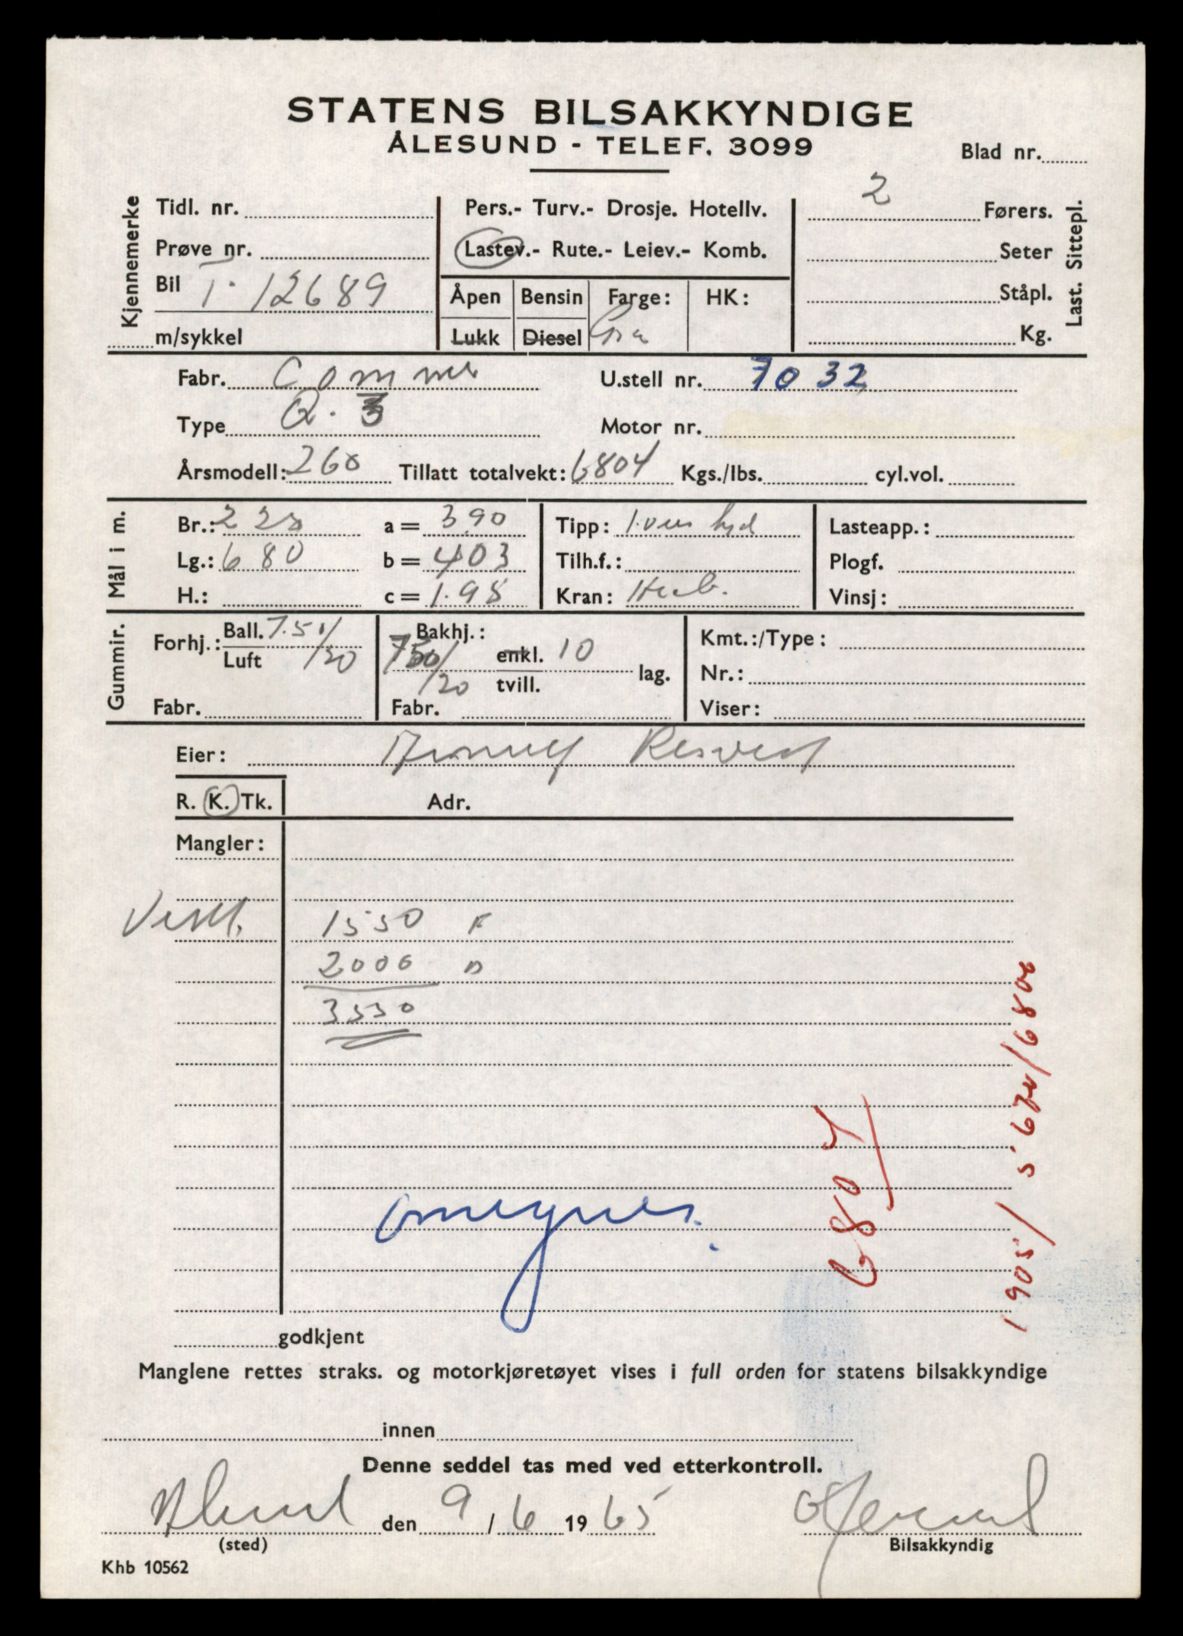 STATENS BILSAKKYNDIGE
ÅLESUND - TELEF. 3099
Blad nr.
Kjennemerke
Tidl. nr.
Prøve nr.
Bil T. 12689
m/sykkel
Pers.- Turv.- Drosje. Hotellv.
Lastev.- Rute.- Leiev.- Komb.
Åpen Bensin Farge: HK:
Lukk Diesel Grå
2 Førers.
Seter
Ståpl.
Kg.
Last. Sittepl.
Fabr. Commer U.stell nr. 7032
Type Q. 3 Motor nr.
Årsmodell: 260 Tillatt totalvekt: 6804 Kgs./lbs. cyl.vol.
Mål i m.
Br.: 228 a = 3.90 Tipp: hyd Lasteapp.:
Lg.: 680 b = 403 Tilh.f.: Plogf.
H.: c = 1.98 Kran: Vinsj:
Gummir.
Forhj.: Ball. 7.50/20 Luft
Bakhj.: 750/20 enkl. tvill. 10 lag.
Kmt.:/Type:
Nr.:
Fabr. Fabr. Viser:
Eier:
R. K. Tk. Adr.
Mangler:
1550 F
2000 B
3550
6804
1905/ 5 670/6806
godkjent
Manglene rettes straks. og motorkjøretøyet vises i full orden for statens bilsakkyndige
innen
Denne seddel tas med ved etterkontroll.
Ålesund den 9/6 1965
(sted) Bilsakkyndig
Khb 10562